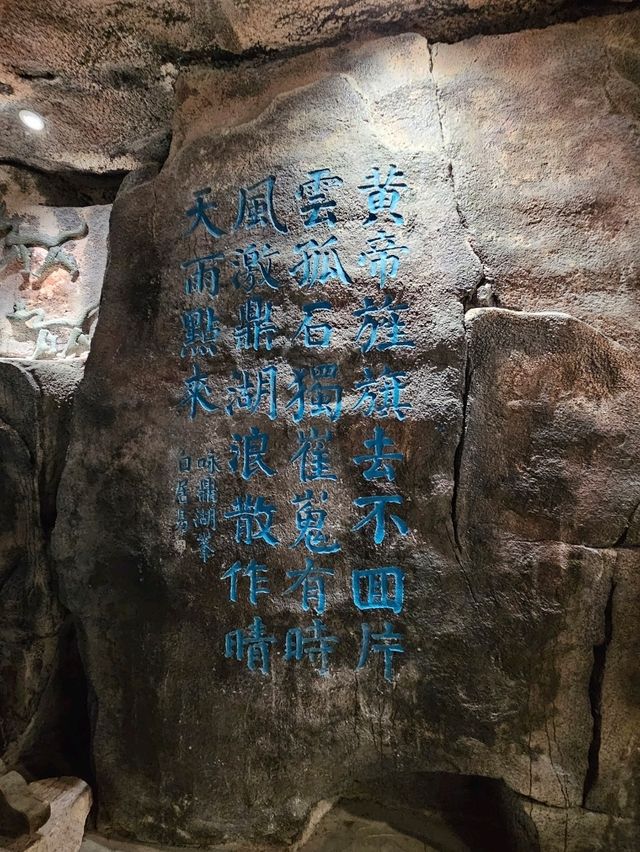 黃帝旌旗去不囬片
雲孤石獨崔嵬有時
風激鼎湖浪散作晴
天雨點來
咏鼎湖峯
白居易